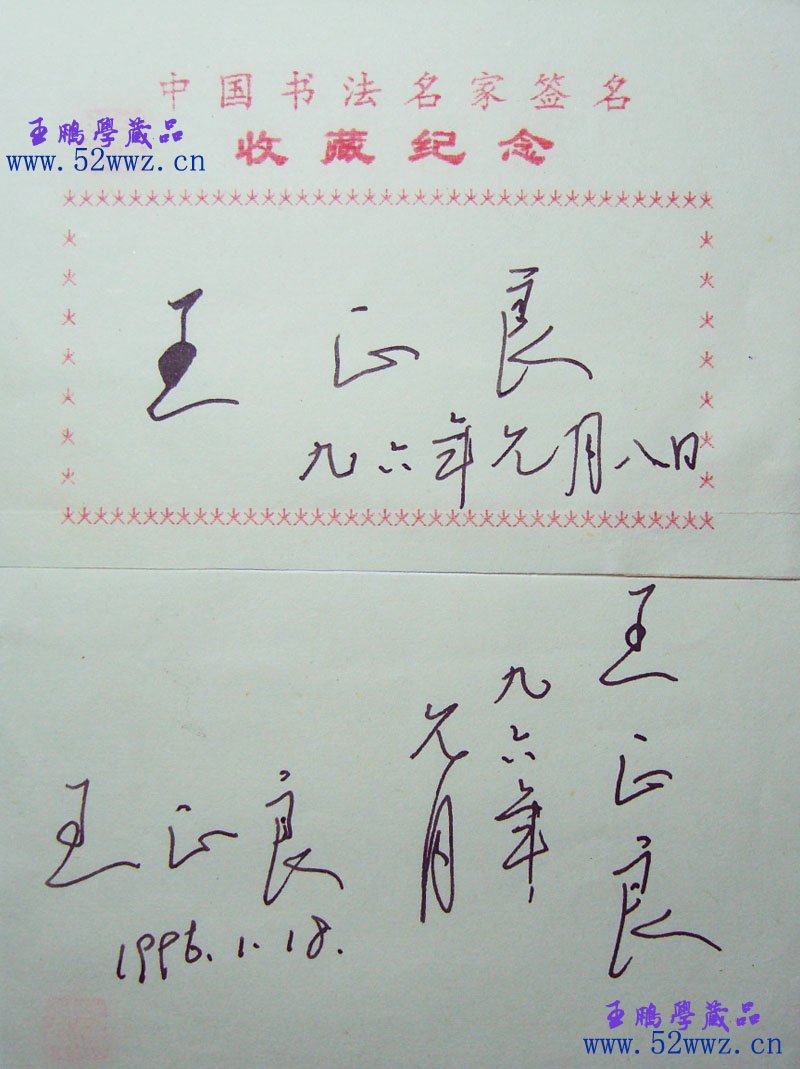 中国书法名家签名
王鹏學蔵品
收藏纪念
www.52wwz.cn
王正良
九六年元月八日
王正良
九六年
元月
王正良
1996.1.18.
王鹏學蔵品
www.52wwz.cn